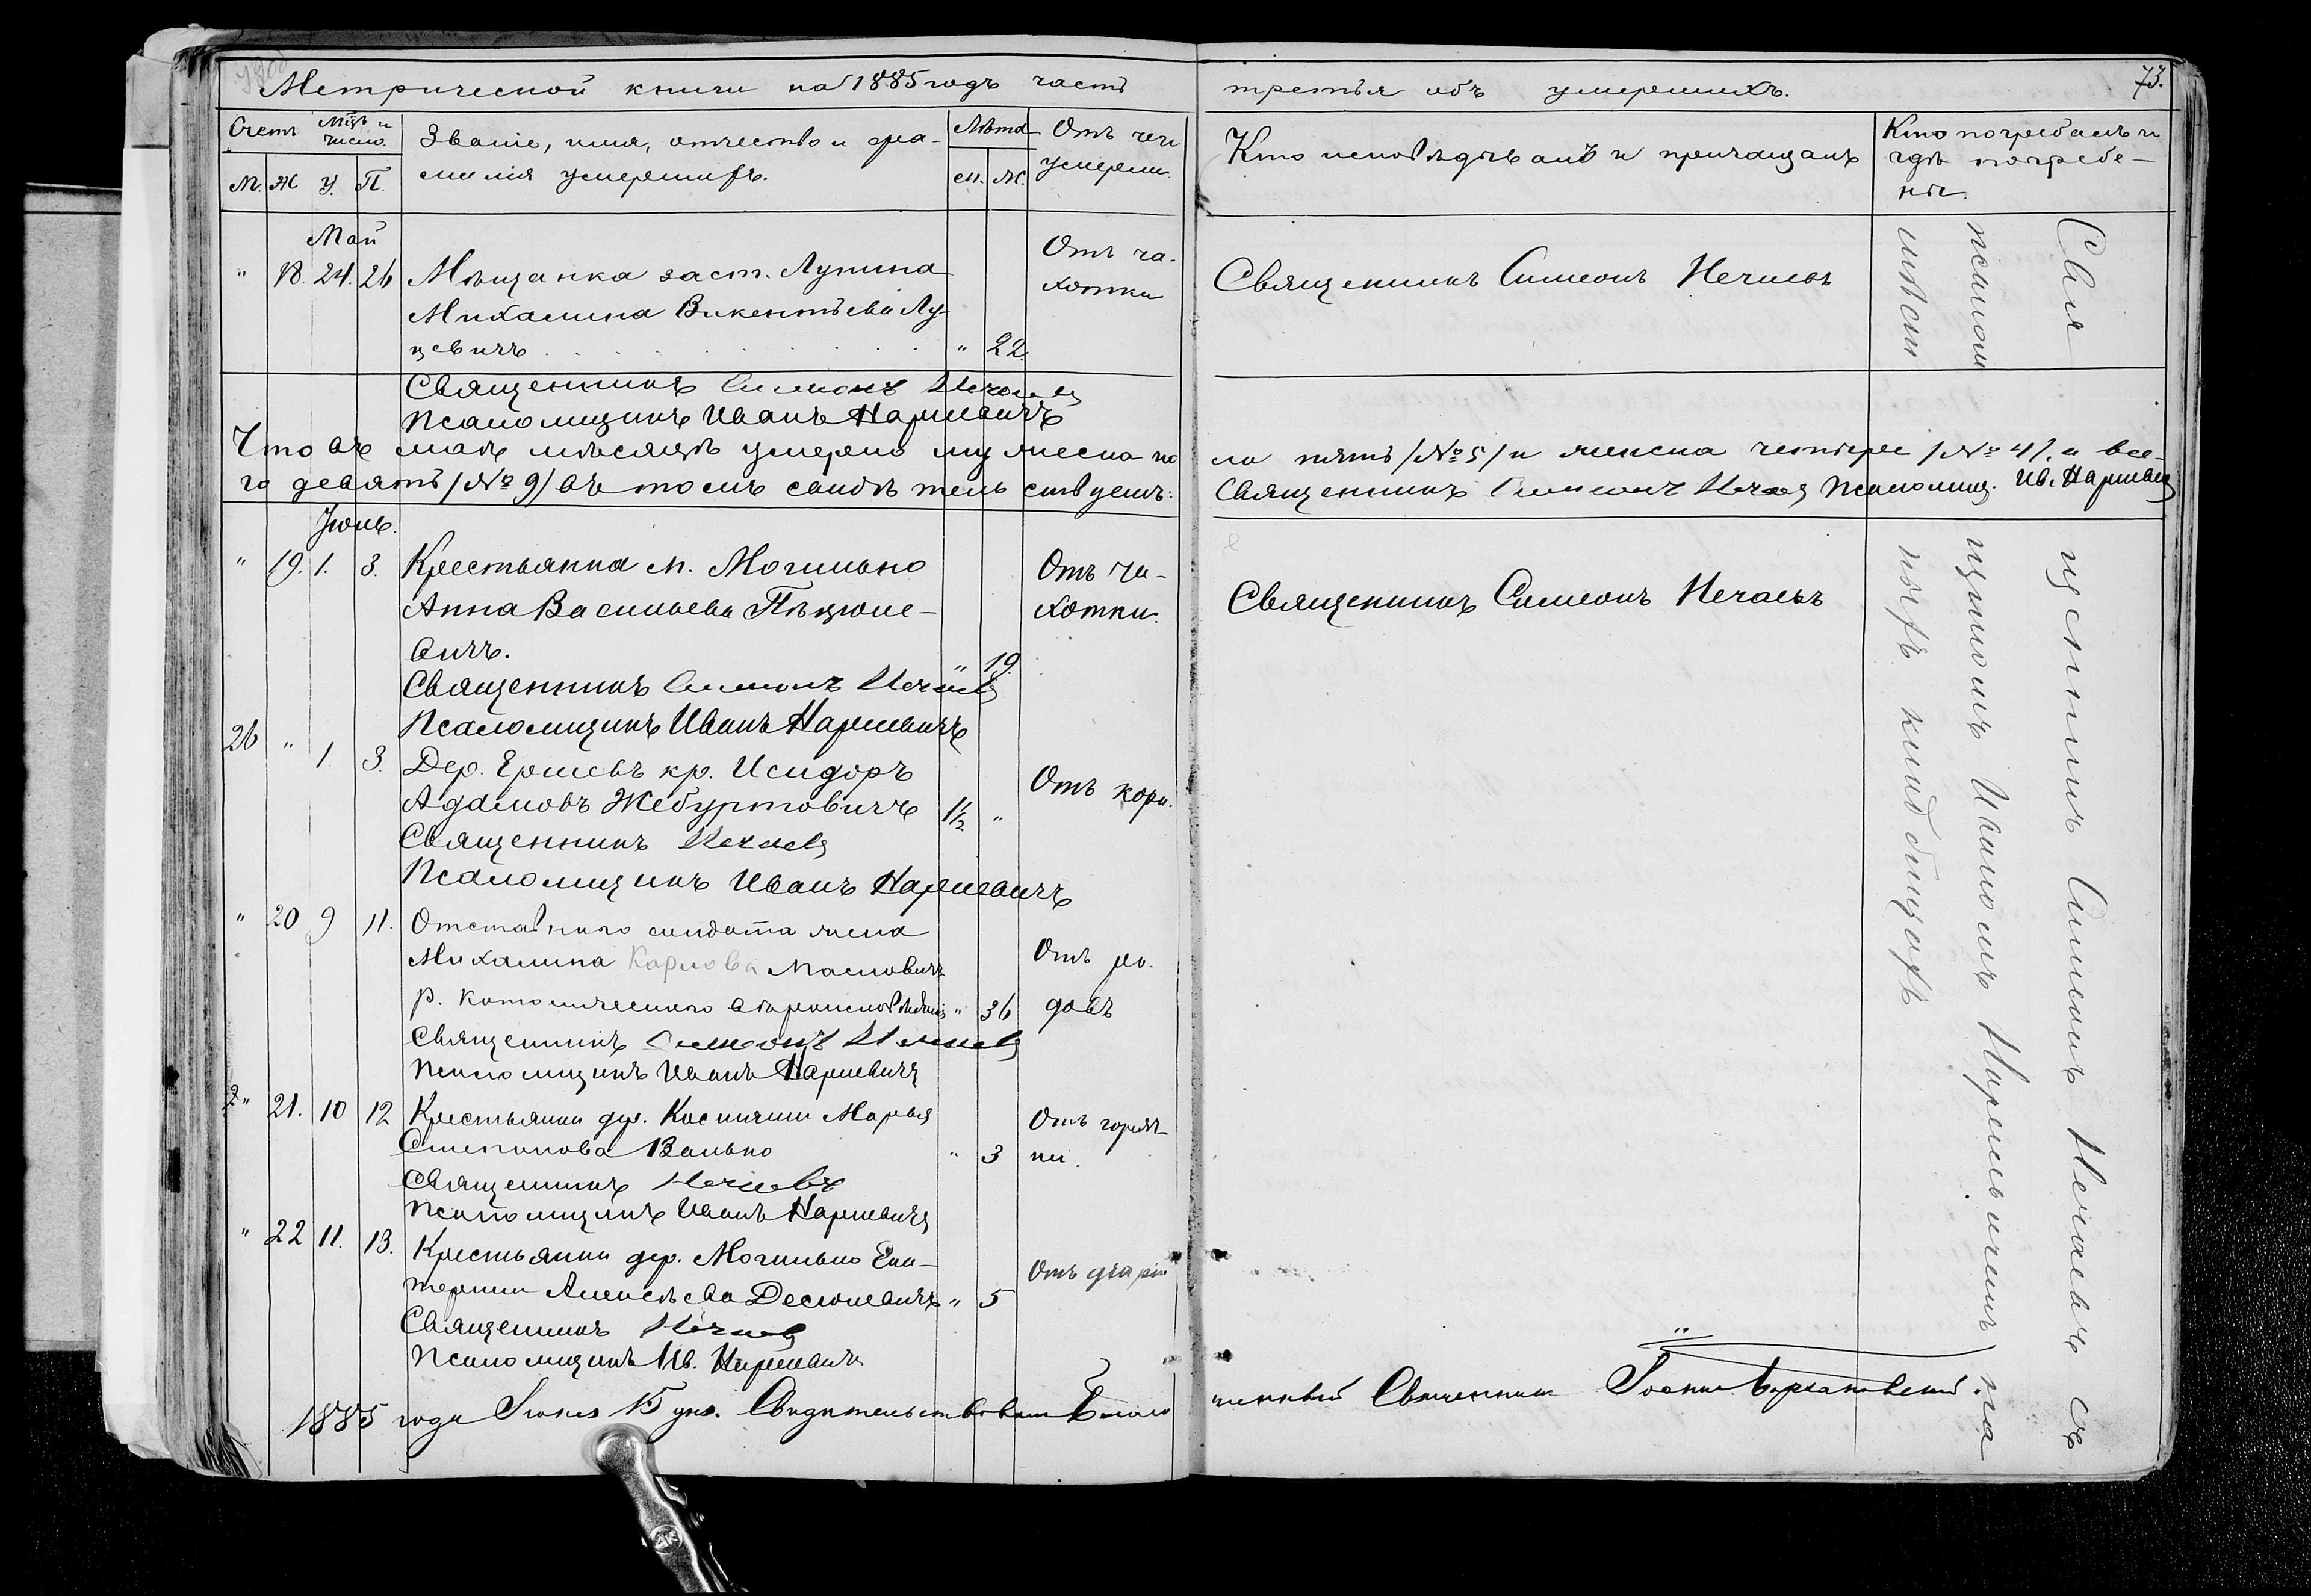 Метрической книги на 1885 годъ часть
третья объ умершихъ.
73.
Счетъ
Мцъ и число.
Званіе, имя, отчество и фа-
милія умершихъ.
Лѣта
Отъ чего
умерли.
М. Ж У. П.
м. ж.
Кто исповѣдывалъ и причащалъ
Кто погребалъ и
гдѣ погребе-
ны.
Май
" 18. 24. 26 Мѣщанка заст. Лупина
Михалина Викентьева Лу-
цевичъ " 22.
Отъ ча-
хотки
Священникъ Симеонъ Нечаевъ
Священникъ Симеонъ Нечаевъ
Псаломщикъ Иванъ Наркевичъ
Что въ маѣ мѣсяцѣ умерло мужеска по
ла пять /№ 5/ и женска четыре /№ 4/, а все-
го девять /№ 9/ въ томъ свидѣтельствуемъ:
Священникъ Симеонъ Нечаевъ Псаломщ. Ив. Наркевичъ
Іюнь.
" 19. 1. 3. Крестьянка м. Могильно
Анна Васильева Пѣцюле-
вичъ. " 19.
Отъ ча-
хотки.
Священникъ Симеонъ Нечаевъ
Священникъ Симеонъ Нечаевъ
Псаломщикъ Иванъ Наркевичъ
26 " 1. 3. Дер. кр. Исидоръ
Адамовъ Жебуртовичъ 1½ "
Отъ кори.
Священникъ Нечаевъ
Псаломщикъ Иванъ Наркевичъ
" 20 9 11. Отставнаго солдата жена
Михалина Карлова Масловичъ
р. католическаго вѣроисповѣданія " 36
Отъ ро-
довъ
Священникъ Симеонъ Нечаевъ
Псаломщикъ Иванъ Наркевичъ
" 21. 10 12 Крестьянка дер. Марья
Степанова Валько " 3
Отъ горяч-
ки.
Священникъ Нечаевъ
Псаломщикъ Иванъ Наркевичъ
" 22 11. 13. Крестьянка дер. Могильно Ека-
терина Алексѣева Десюкевичъ " 5
Отъ
Священникъ Нечаевъ
Псаломщикъ Ив. Наркевичъ
1885 года Іюня 15 дня. Свидѣтельствовалъ Благо
чинный Священникъ Іоаннъ
Священникъ Симеонъ Нечаевъ съ
псаломщикомъ Иваномъ Наркевичемъ на
мѣстныхъ кладбищахъ